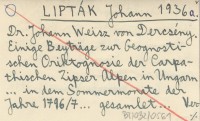 LIPTÁK Johann 1936a.
Dr. Johann Weisz von Dercsény.
Einige Beyträge zur Geognosti-
schen Oriktognosie der Carpa-
thischen Zipser Alpen in Ungarn
... in dem Sommermonate der
Jahre 1796/7... gesamlet.. Ver-